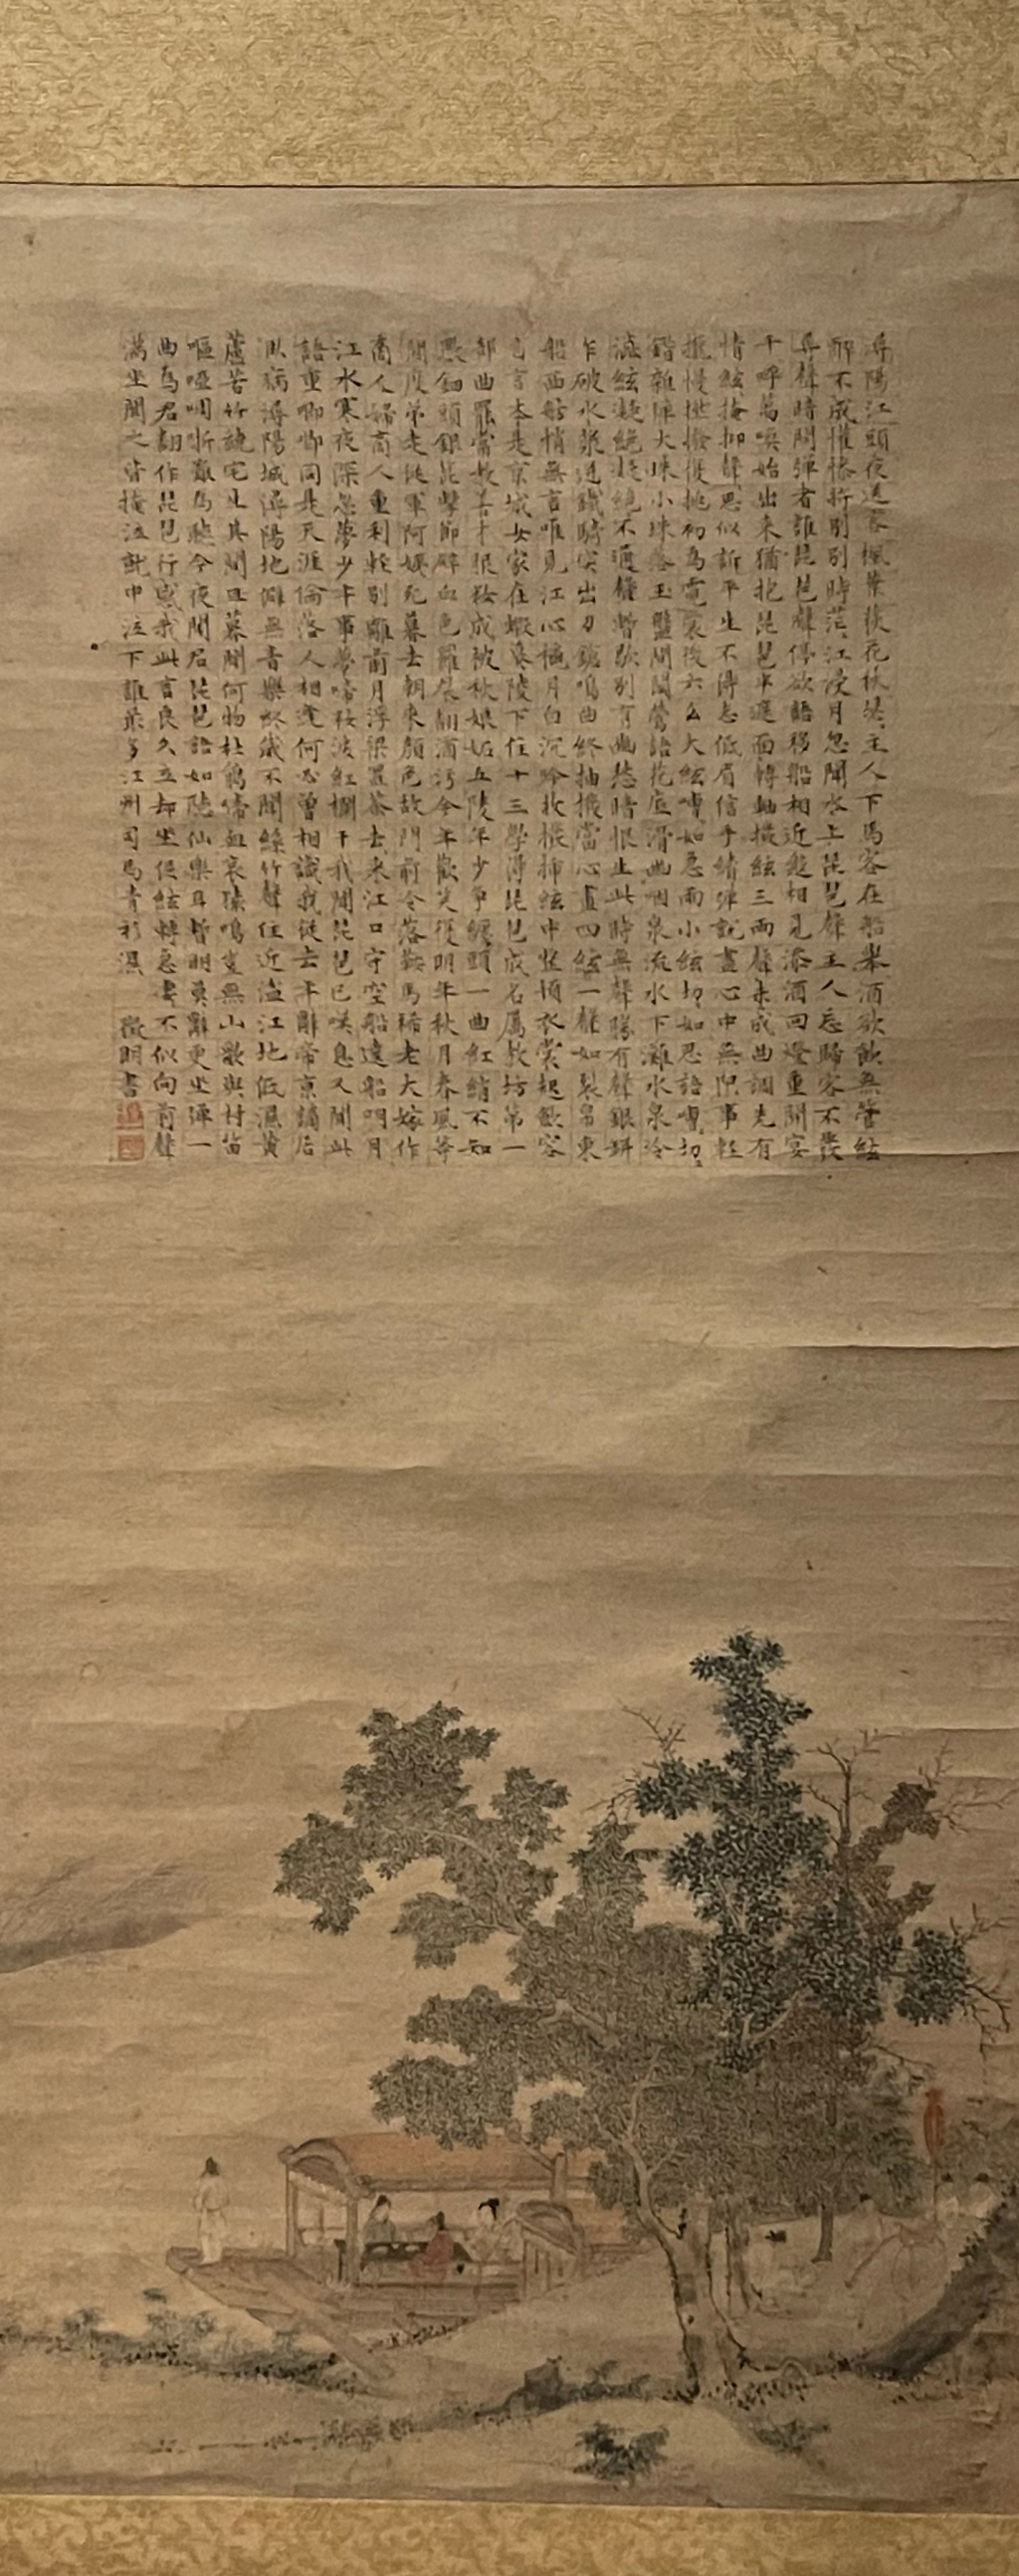 潯陽江頭夜送客楓葉荻花秋瑟〻主人下馬客在船舉酒欲飲無管絃
醉不成懽慘將別別時茫〻江浸月忽聞水上琵琶聲主人忘歸客不發
尋聲暗問彈者誰琵琶聲停欲語移船相近邀相見添酒回燈重開宴
千呼萬喚始出来猶抱琵琶半遮面轉軸撥絃三兩聲未成曲調先有
情絃〻掩抑聲〻思似訴平生不得志低眉信手續〻彈說盡心中無限事輕
攏慢撚撥復挑初為霓裳後六么大絃嘈〻如急雨小絃切〻如思語嘈〻切〻
錯雜彈大珠小珠落玉盤間關鶯語花底滑幽咽泉流水下灘水泉冷
澁絃凝絕凝絕不通聲暫歇別有幽愁暗恨生此時無聲勝有聲銀缾
乍破水漿迸鐵騎突出刀鎗鳴曲終抽撥當心畫四絃一聲如裂帛東
船西舫悄無言唯見江心秋月白沉吟收撥插絃中整頓衣裳起斂容
自言本是京城女家在蝦蟇陵下住十三學得琵琶成名屬教坊第一
部曲罷常教善才服妝成被秋娘妬五陵年少爭纏頭一曲紅綃不知
數鈿頭銀篦擊節碎血色羅裙翻酒污今年歡笑復明年秋月春風等
閒度弟走從軍阿姨死暮去朝來顏色故門前冷落鞍馬稀老大嫁作
商人婦商人重利輕別離前月浮梁買茶去〻來江口守空船遶船明月
江水寒夜深忽夢少年事夢啼妝淚紅欄干我聞琵琶已嘆息又聞此
語重唧唧同是天涯淪落人相逢何必曾相識我從去年辭帝京謫居
臥病潯陽城潯陽地僻無音樂終歲不聞絲竹聲住近湓江地低濕黃
蘆苦竹繞宅生其間旦暮聞何物杜鵑啼血哀猿鳴豈無山歌與村笛
嘔啞啁哳難為聽今夜聞君琵琶語如聽仙樂耳暫明莫辭更坐彈一
曲為君翻作琵琶行感我此言良久立却坐促絃轉急凄〻不似向前聲
滿坐聞之皆掩泣就中泣下誰最多江州司馬青衫濕 徵明書